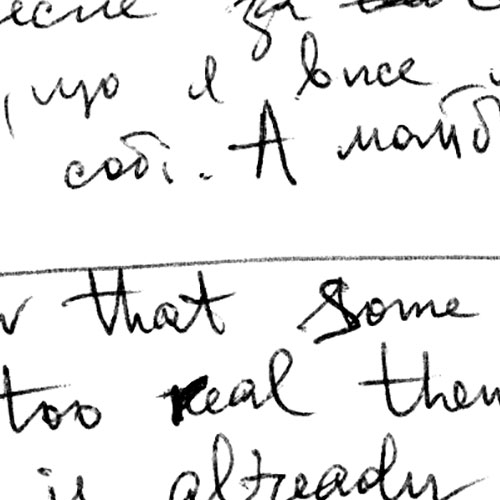 за
, що я вже
собі. А майб
that some
too real then
is already